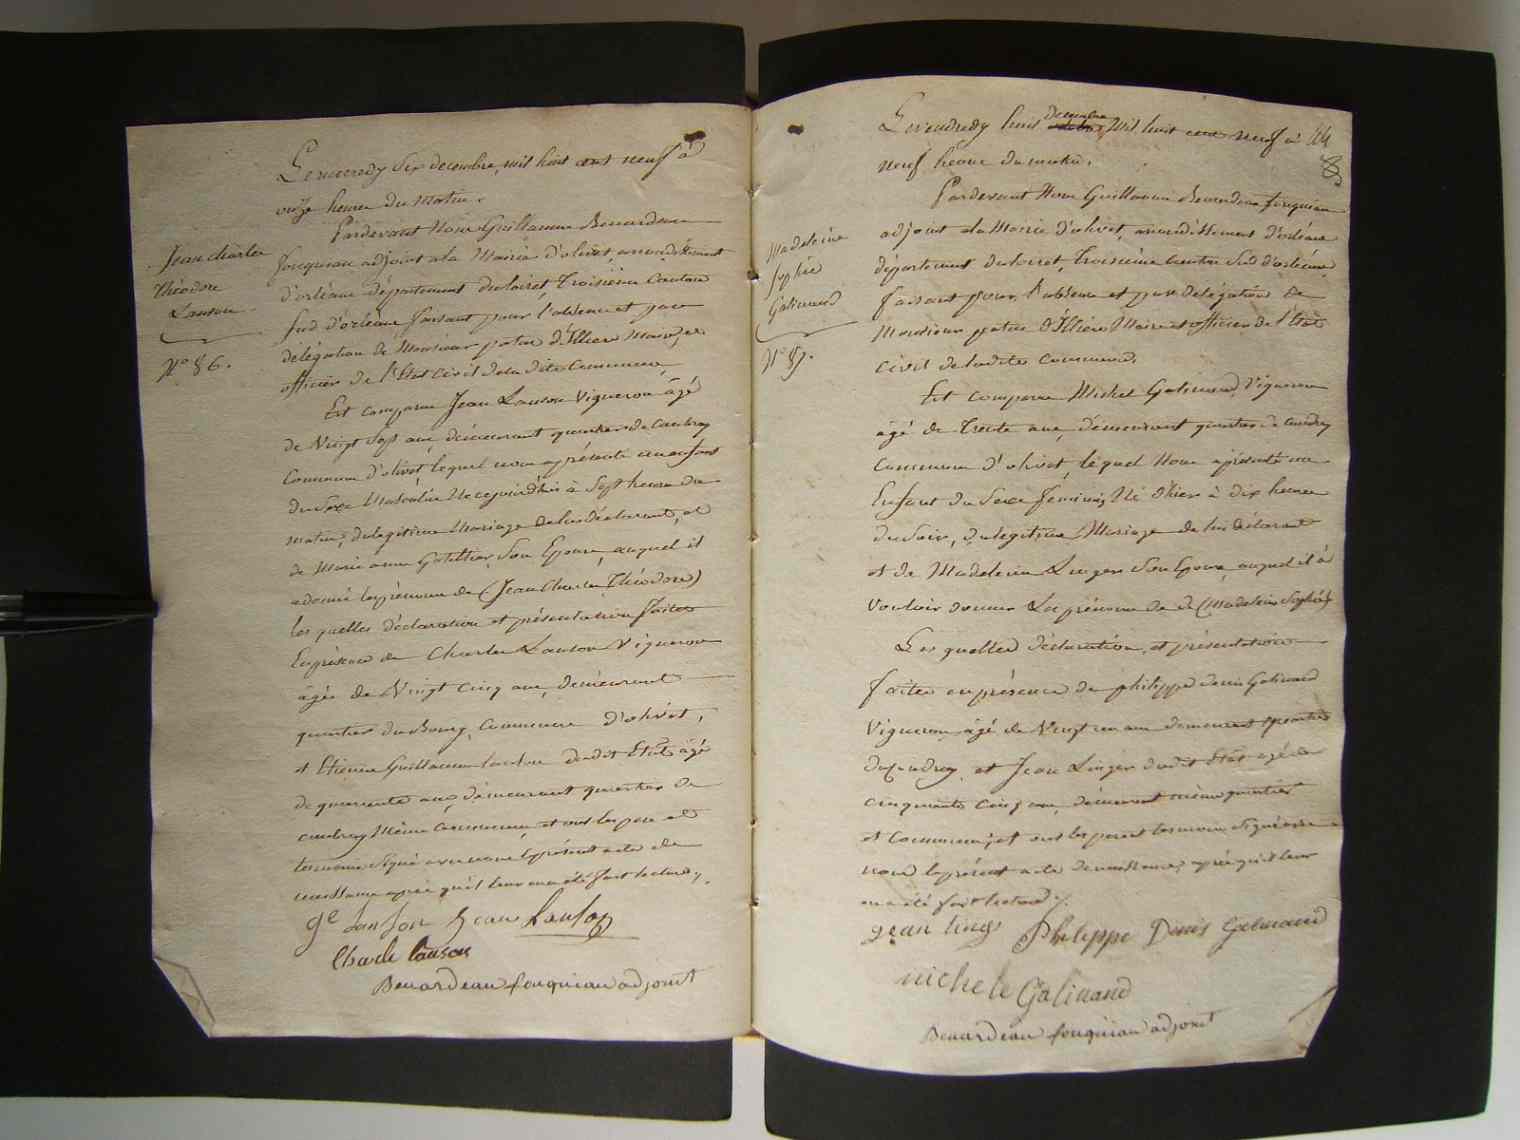 Le mercredy Six decembre, mil huit cent neuf à
onze heures du Matin.
Pardevant Nous Guillaume Benardeau
fouquiau adjoint ala Mairie d'olivet, arrondissement
d'orléans département du loiret, Troisième Canton
Sud d'orléans faisant pour l'absence et par
délégation de Monsieur patas d'Illiers Maire, et
officier de l'Etat Civil de la dite Commune
Est comparu Jean Lanson Vigneron âgé
de Vingt Sept ans, demeurant quartier de Caubray
Commune d'olivet, lequel nous a présenté un enfant
du Sexe Masculin Né cejourd'hui à Sept heures du
matin, du legitime Mariage de lui déclarant, et
de Marie anne Son Epouse, auquel il
a donné les prénoms de (Jean Charles Théodore)
les quelles déclaration et présentation faites
En présence de Charles Lanson Vigneron
âgé de Vingt Cinq ans, demeurant
quartier du Bourg, Commune d'olivet,
et Etienne Guillaume Lanson dudit Etat âgé
de quarante ans, demeurant quartier de
caubray Même Commune, et ont les pere et
temoins Signé avec nous le présent acte de
naissance après qu'il leur en a été fait lecture,
ge Lanson Jean Lanson
Charle lanson
Benardeau fouquiau adjoint
Jean Charles
Théodore
Lanson
No 86.
Le vendredy huit Decembre Mil huit cent neuf à
neuf heures du matin.
Pardevant Nous Guillaume Benardeau fouquiau
adjoint ala Mairie d'olivet, arrondissement d'orléans
département du loiret, Troisième Canton Sud d'orléans
faisant pour l'absence et par délégation de
Monsieur patas d'Illiers Maire et officier de l'Etat
civil de ladite Commune.
Est comparu Michel Galinand, Vigneron
âgé de Trente ans, demeurant quartier de Caudray
Commune d'olivet, lequel Nous a présenté un
Enfant du Sexe feminin, Né d'hier à dix heures
du Soir, du legitime Mariage de lui déclarant
et de Madeleine Linger Son Epouse, auquel il a
Vouloir donner Les prénoms de de (Madeleine Sophie)
Les quelles déclaration, et présentation
faites en présence de philippe denis Galinand
Vigneron âgé de Vingt un ans demeurant quartier
du Caudray, et Jean Linger dudit Etat âgé de
cinquante cinq ans, demeurant même quartier
et Commune, et ont les pere et temoins Signé avec
nous le présent acte de naissance, après qu'il leur
en a été fait lecture.
jean linger Philippe Denis Galinand
michele Galinand
Benardeau fouquiau adjoint
Madeleine
Sophie
Galinand
No 87.